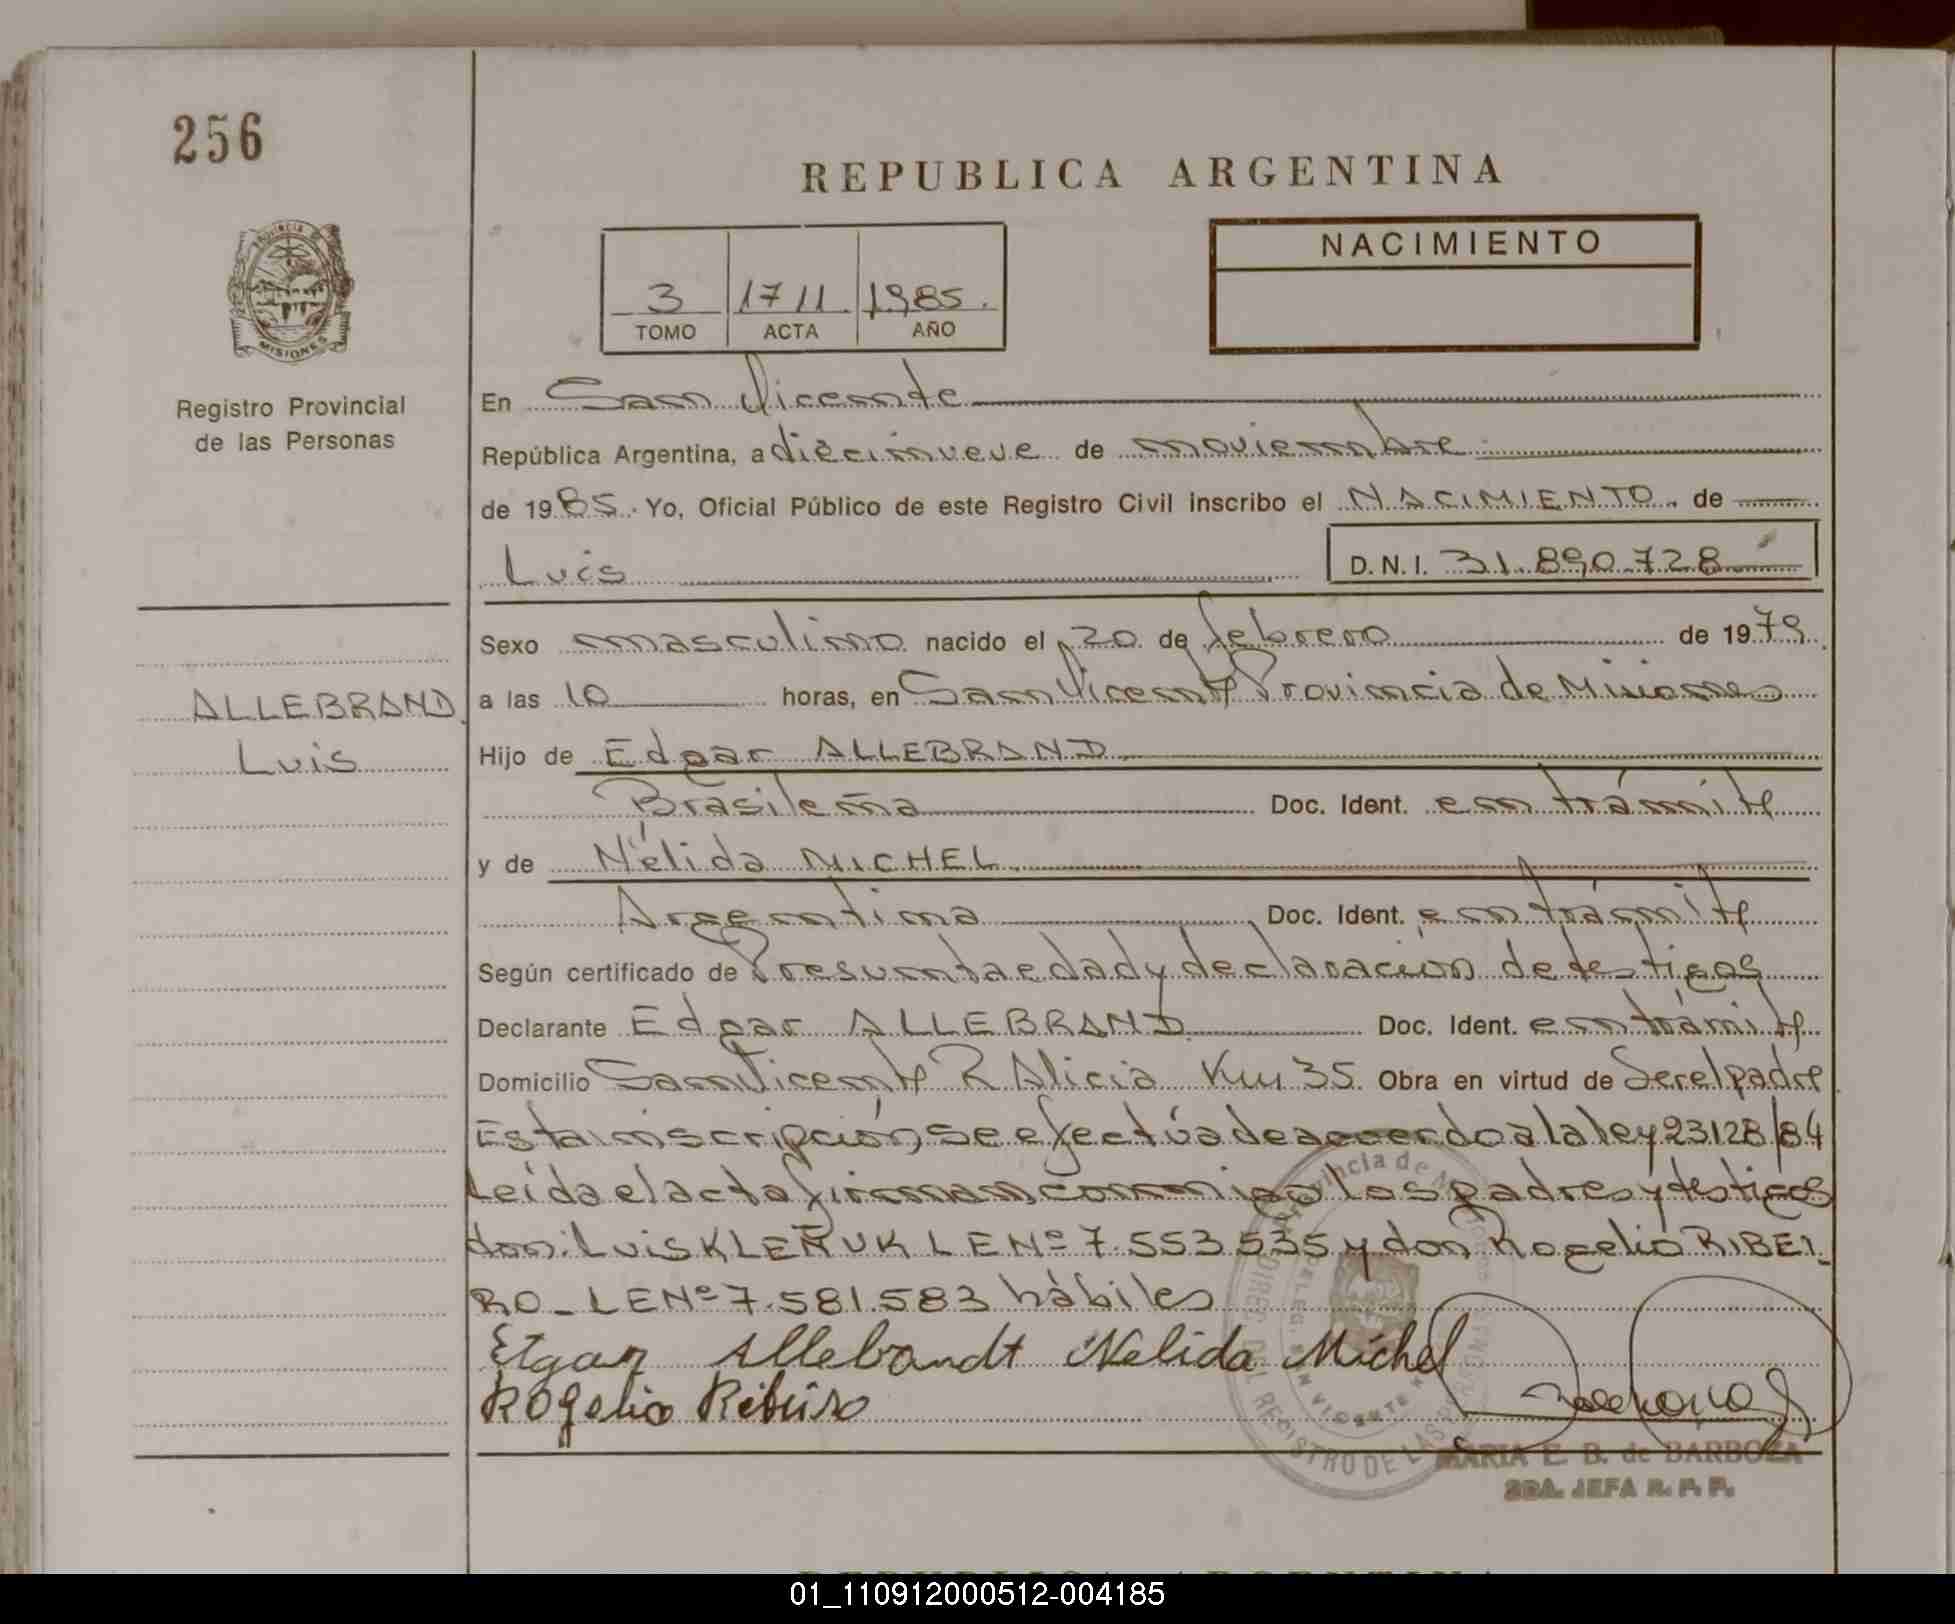 256
REPUBLICA ARGENTINA
PROVINCIA DE
MISIONES
Registro Provincial
de las Personas
3 1711 1985.
TOMO ACTA AÑO
NACIMIENTO
En San Vicente
República Argentina, a diecinueve de noviembre
de 1985. Yo, Oficial Público de este Registro Civil inscribo el NACIMIENTO. de
Luis D.N.I. 31.890.728
Sexo masculino nacido el 20 de febrero de 1979
ALLEBRAND
Luis
a las 10 horas, en San Vicente Provincia de Misiones
Hijo de Edgar ALLEBRAND
Brasileña Doc. Ident. en trámite
y de Nélida MICHEL
Argentina Doc. Ident. en trámite
Según certificado de Presunta edad y declaración de testigos
Declarante Edgar ALLEBRAND Doc. Ident. en trámite
Domicilio San Vicente R Alicia Km 35. Obra en virtud de Ser el padre
Esta inscripción se efectúa de acuerdo a la ley 23.128/84
Leída el acta firman conmigo los padres y testigos
don: Luis KLEÑUK L E Nº 7.553.535 y don Rogelio RIBEI_
RO_ L E Nº 7.581.583 hábiles
Etgar Allebrandt Nelida Michel
Rogelio Ribeiro
MARIA E. B. de BARBOZA
2DA. JEFA R. P. P.
01_110912000512-004185